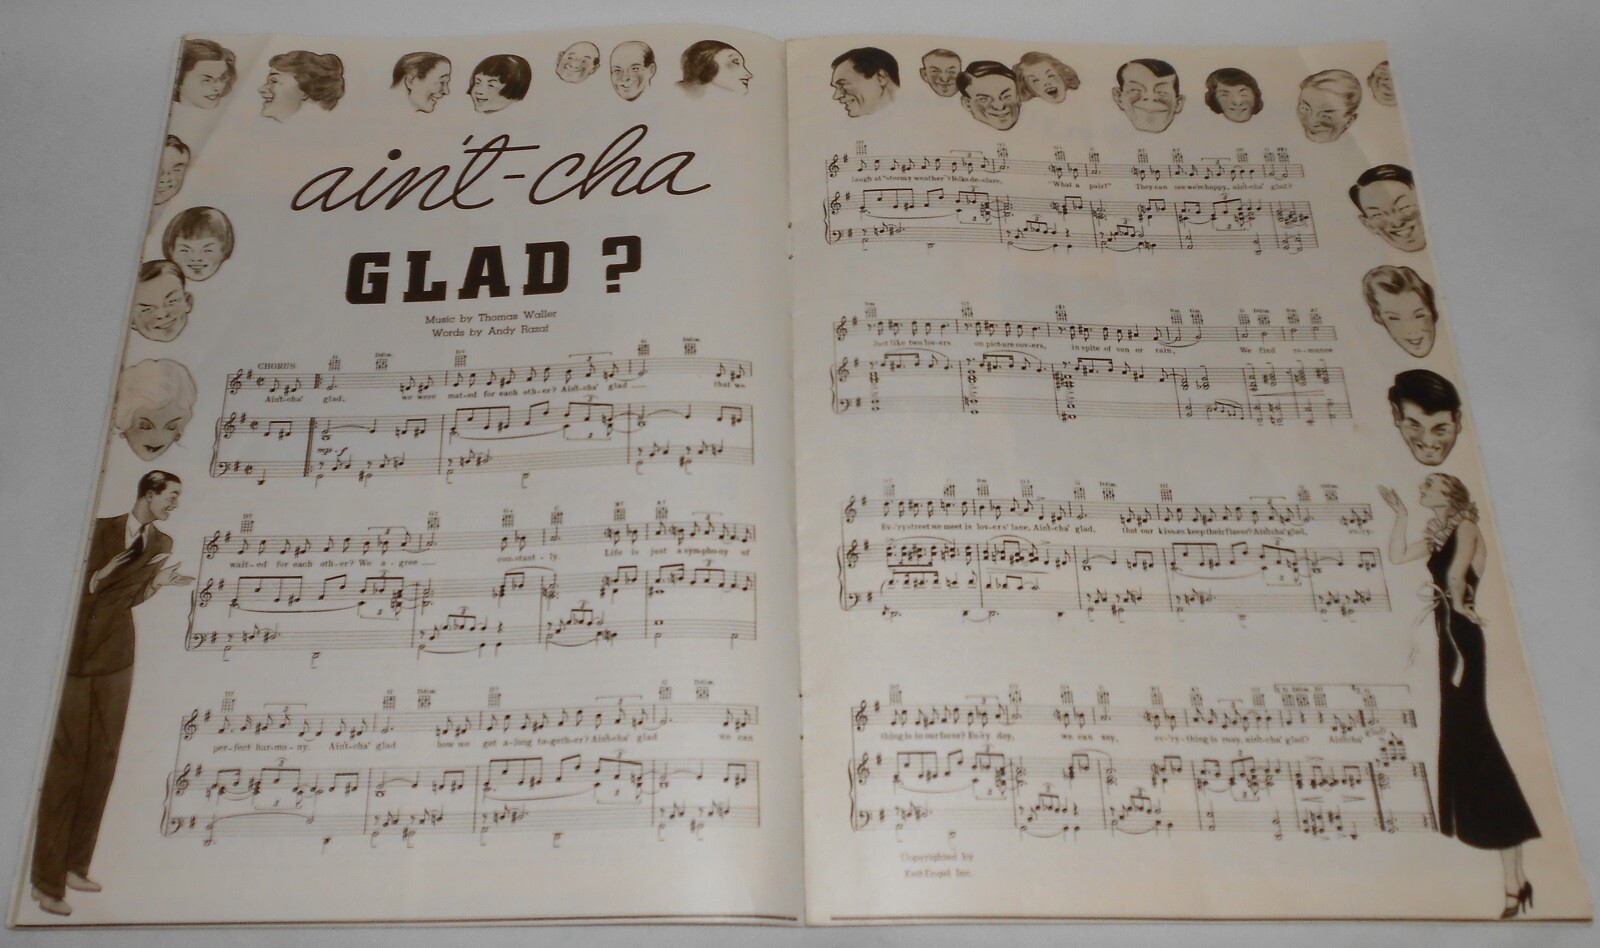 ain't-cha
GLAD?
Music by Thomas Waller
Words by Andy Razaf
CHORUS
Ain't-cha' glad, we were mat-ed for each oth-er? Ain't-cha' glad that we
wait-ed for each oth-er? We a-gree con-stant-ly. Life is just a sym-pho-ny of
per-fect har-mo-ny. Ain't-cha' glad how we get a-long to-geth-er? Ain't-cha' glad we can
laugh at "storm-y weather"? Folks de-clare, "What a pair!" They can see we're happy, ain't-cha' glad?
Just like two lov-ers on pic-ture cov-ers, in spite of sun or rain, We find ro-mance
Ev-'ry street we meet is lov-ers' lane, Ain't-cha' glad, that our kiss-es keep their flavor? Ain't-cha' glad, ev-'ry-
thing is in our favor? Ev-'ry day, we can say, ev-'ry-thing is okay, ain't-cha' glad? Ain't-cha' glad?
Copyrighted by
Inc.